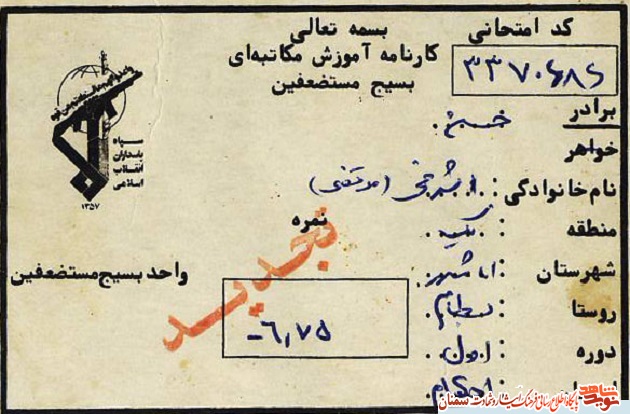 بسمه تعالی
کارنامه آموزش مکاتبه‌ای
بسیج مستضعفین
کد امتحانی
۳۳۷۰۶۸۶
برادر
خواهر
نام خانوادگی: (مرتضی)
منطقه :
شهرستان :
روستا : بسطام
دوره : اول
: احکام
سپاه
پاسداران
انقلاب
اسلامی
۱۳۵۷
واحد بسیج مستضعفین
نمره
۶٫۷۵
تجدید شد
نوید شاهد
پایگاه اطلاع رسانی فرهنگ ایثار و شهادت سمنان